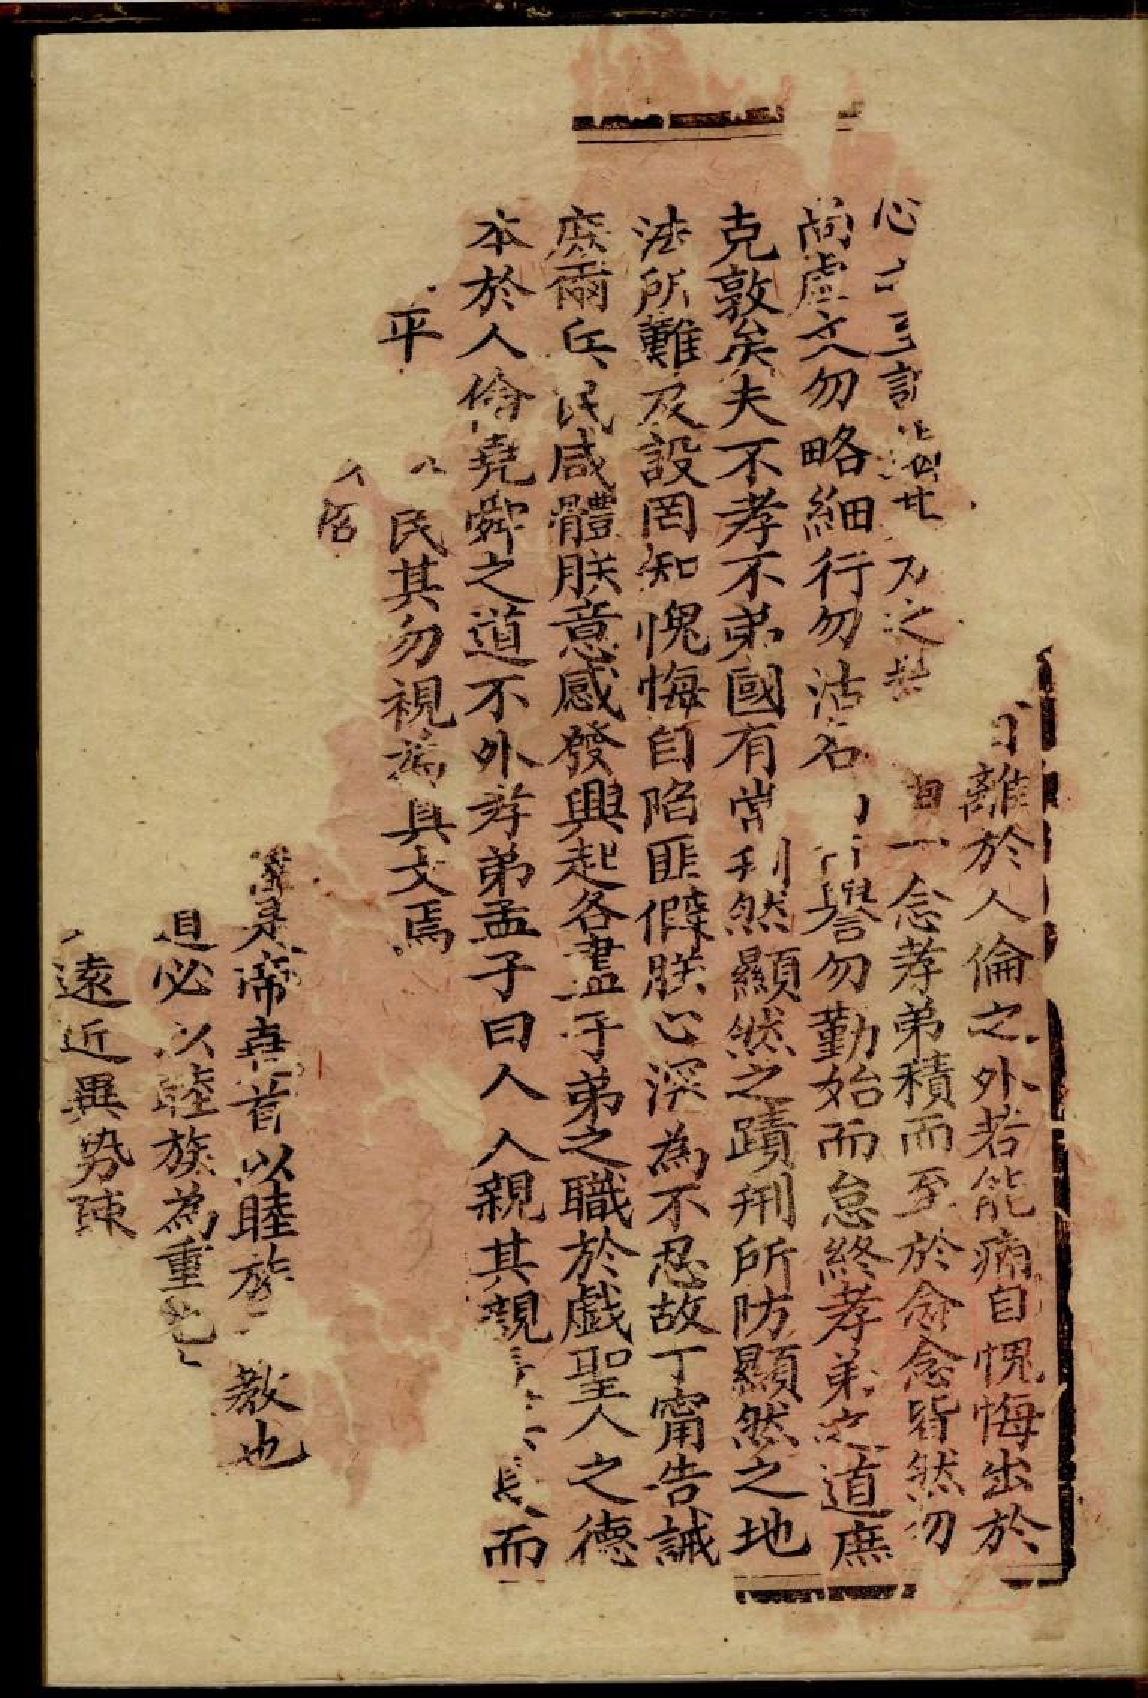 離於人倫之外若能痛自愧悔出於
心之至誠 之 一念孝弟積而至於念念皆然勿
尚虛文勿略細行勿沽名 譽勿勤始而怠終孝弟之道庶
克敦矣夫不孝不弟國有常刑然顯然之蹟刑所防顯然之地
法所難及設罔知愧悔自陷匪僻朕心深為不忍故丁甯告誡
庶爾兵民咸體朕意感發興起各盡子弟之職於戲聖人之德
本於人倫堯舜之道不外孝弟孟子曰人人親其親 長而
平 民其勿視為具文焉
帝 首以睦族 教也
必以睦族為重
遠近異勢疎